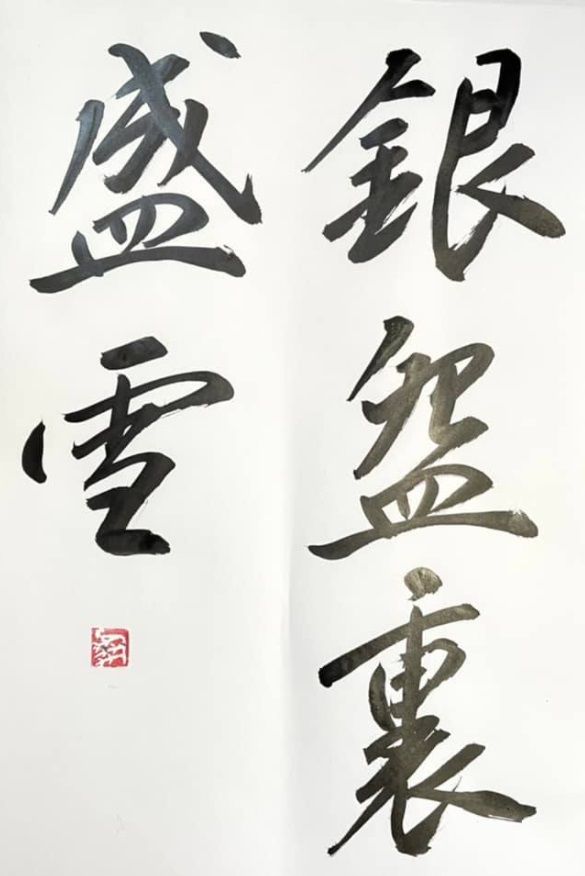 銀盌裏
盛雪